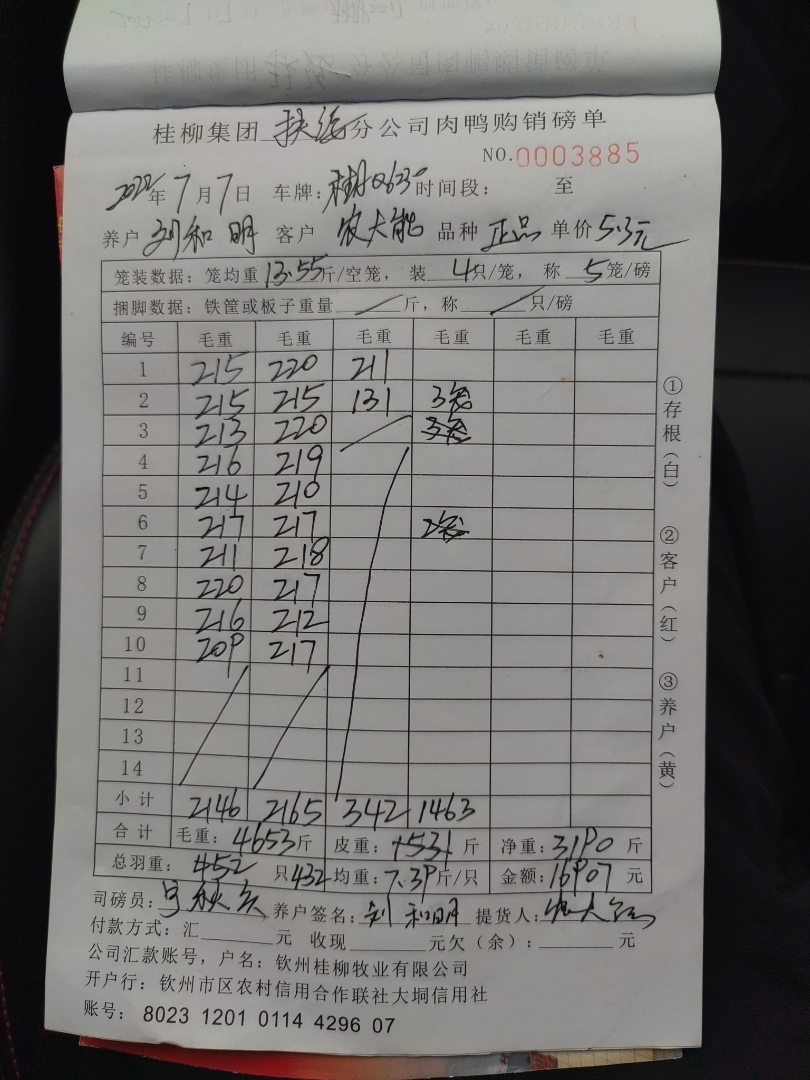 桂柳集团 分公司肉鸭购销磅单
NO.0003885
2022年7月7日 车牌: 时间段: 至
养户 刘和明 客户 农大能 品种 正品 单价 5.3元
笼装数据: 笼均重 13.55斤/空笼, 装 4只/笼, 称 5笼/磅
捆脚数据: 铁筐或板子重量 斤, 称 只/磅
编号 毛重 毛重 毛重 毛重 毛重 毛重
1 215 220 211
2 215 215 131 3笼
3 213 220
4 216 219
5 214 210
6 217 217
7 211 218
8 220 217
9 216 212
10 209 217
11
12
13
14
小计 2146 2165 342 1463
合计 毛重: 4653斤 皮重: 斤 净重: 3190斤
总羽重: 452 只432 均重: 7.39斤/只 金额: 16907元
司磅员: 养户签名: 刘和明 提货人:
付款方式: 汇 元 收现 元欠(余): 元
公司汇款账号, 户名: 钦州桂柳牧业有限公司
开户行: 钦州市区农村信用合作联社大垌信用社
账号: 8023 1201 0114 4296 07
①存根(白)
②客户(红)
③养户(黄)